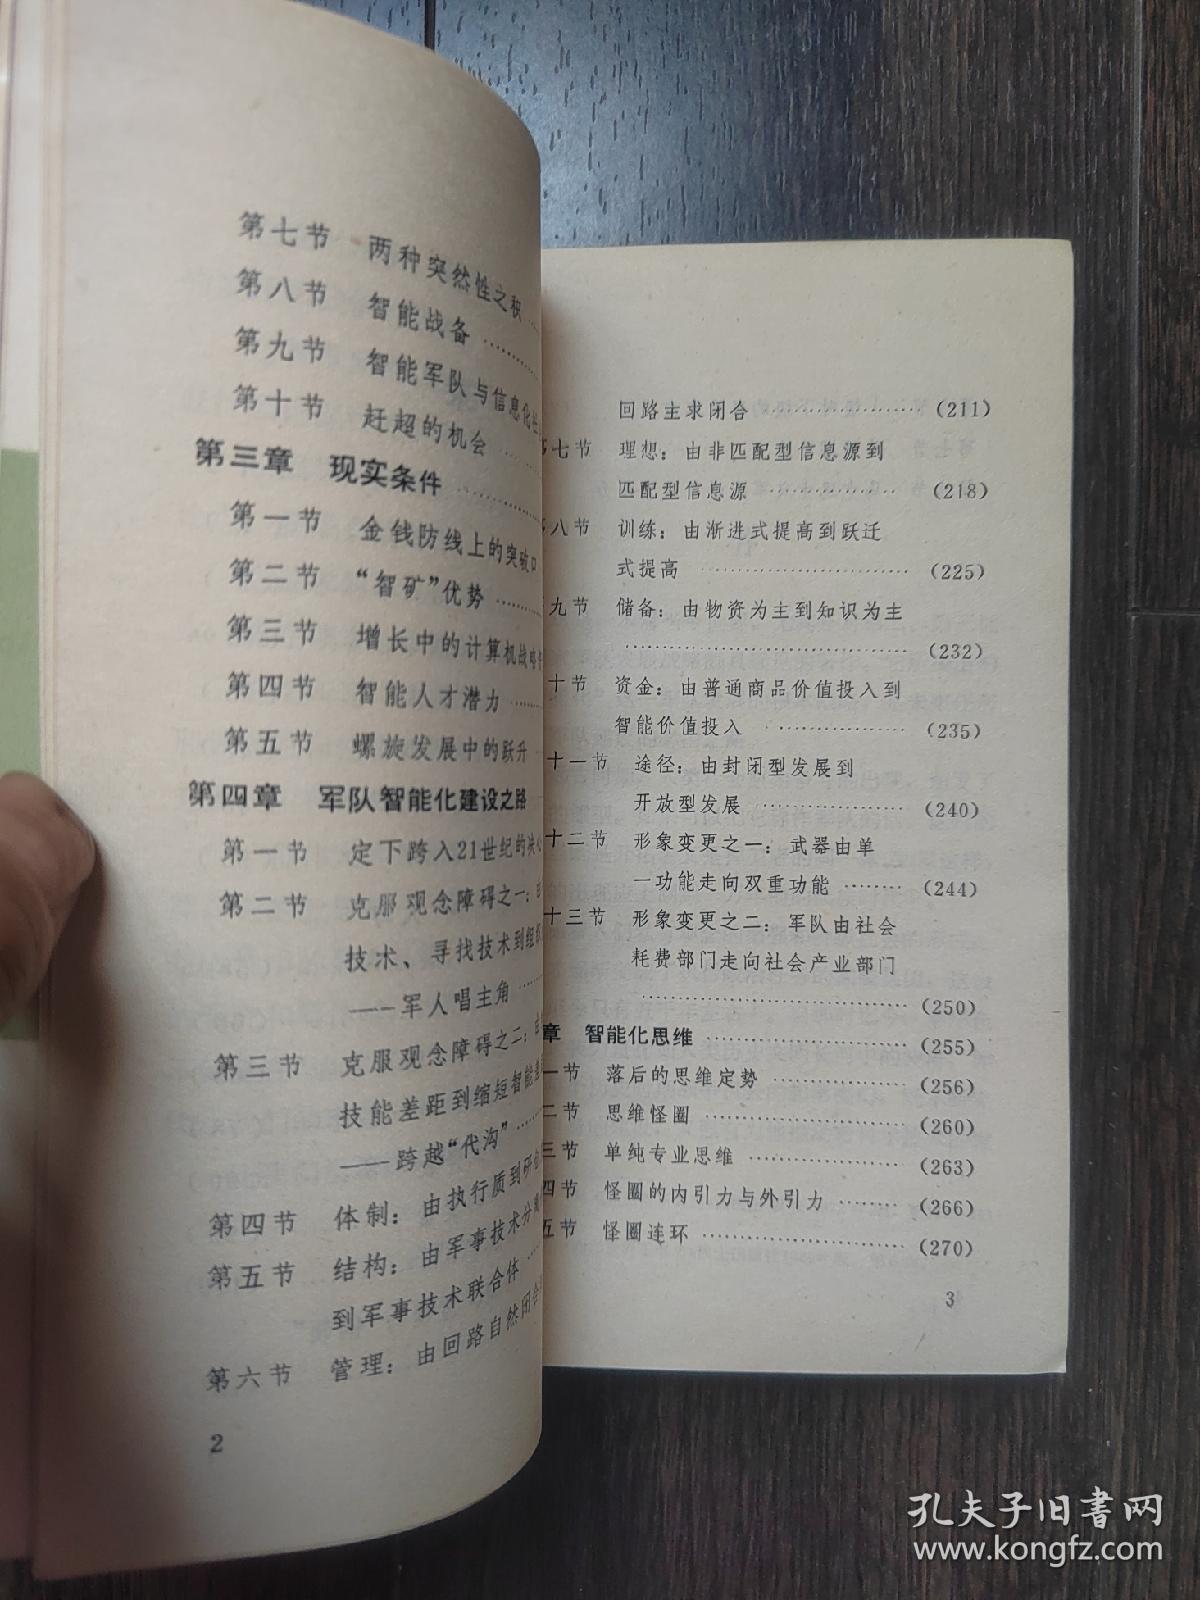 第七节 两种突然性之积……
第八节 智能战备………
第九节 智能军队与信息化
第十节 赶超的机会……
第三章 现实条件………
第一节 金钱防线上的突破口
第二节 “智矿”优势……
第三节 增长中的计算机战略
第四节 智能人才潜力……
第五节 螺旋发展中的跃升
第四章 军队智能化建设之路
第一节 定下跨入21世纪的决心
第二节 克服观念障碍之一：
技术、寻找技术到组织
——军人唱主角………
第三节 克服观念障碍之二：由
技能差距到缩短智能差
——跨越“代沟”………
第四节 体制：由执行质到
第五节 结构：由军事技术分
到军事技术联合体……
第六节 管理：由回路自然闭合
2
回路主求闭合………………(211)
七节 理想：由非匹配型信息源到
匹配型信息源………………(218)
八节 训练：由渐进式提高到跃迁
式提高………………(225)
九节 储备：由物资为主到知识为主
………………(232)
十节 资金：由普通商品价值投入到
智能价值投入………………(235)
十一节 途径：由封闭型发展到
开放型发展………………(240)
十二节 形象变更之一：武器由单
一功能走向双重功能………(244)
十三节 形象变更之二：军队由社会
耗费部门走向社会产业部门
………………(250)
章 智能化思维………………(255)
一节 落后的思维定势………………(256)
二节 思维怪圈………………(260)
三节 单纯专业思维………………(263)
四节 怪圈的内引力与外引力………(266)
五节 怪圈连环………………(270)
3
孔夫子旧书网
www.kongfz.com